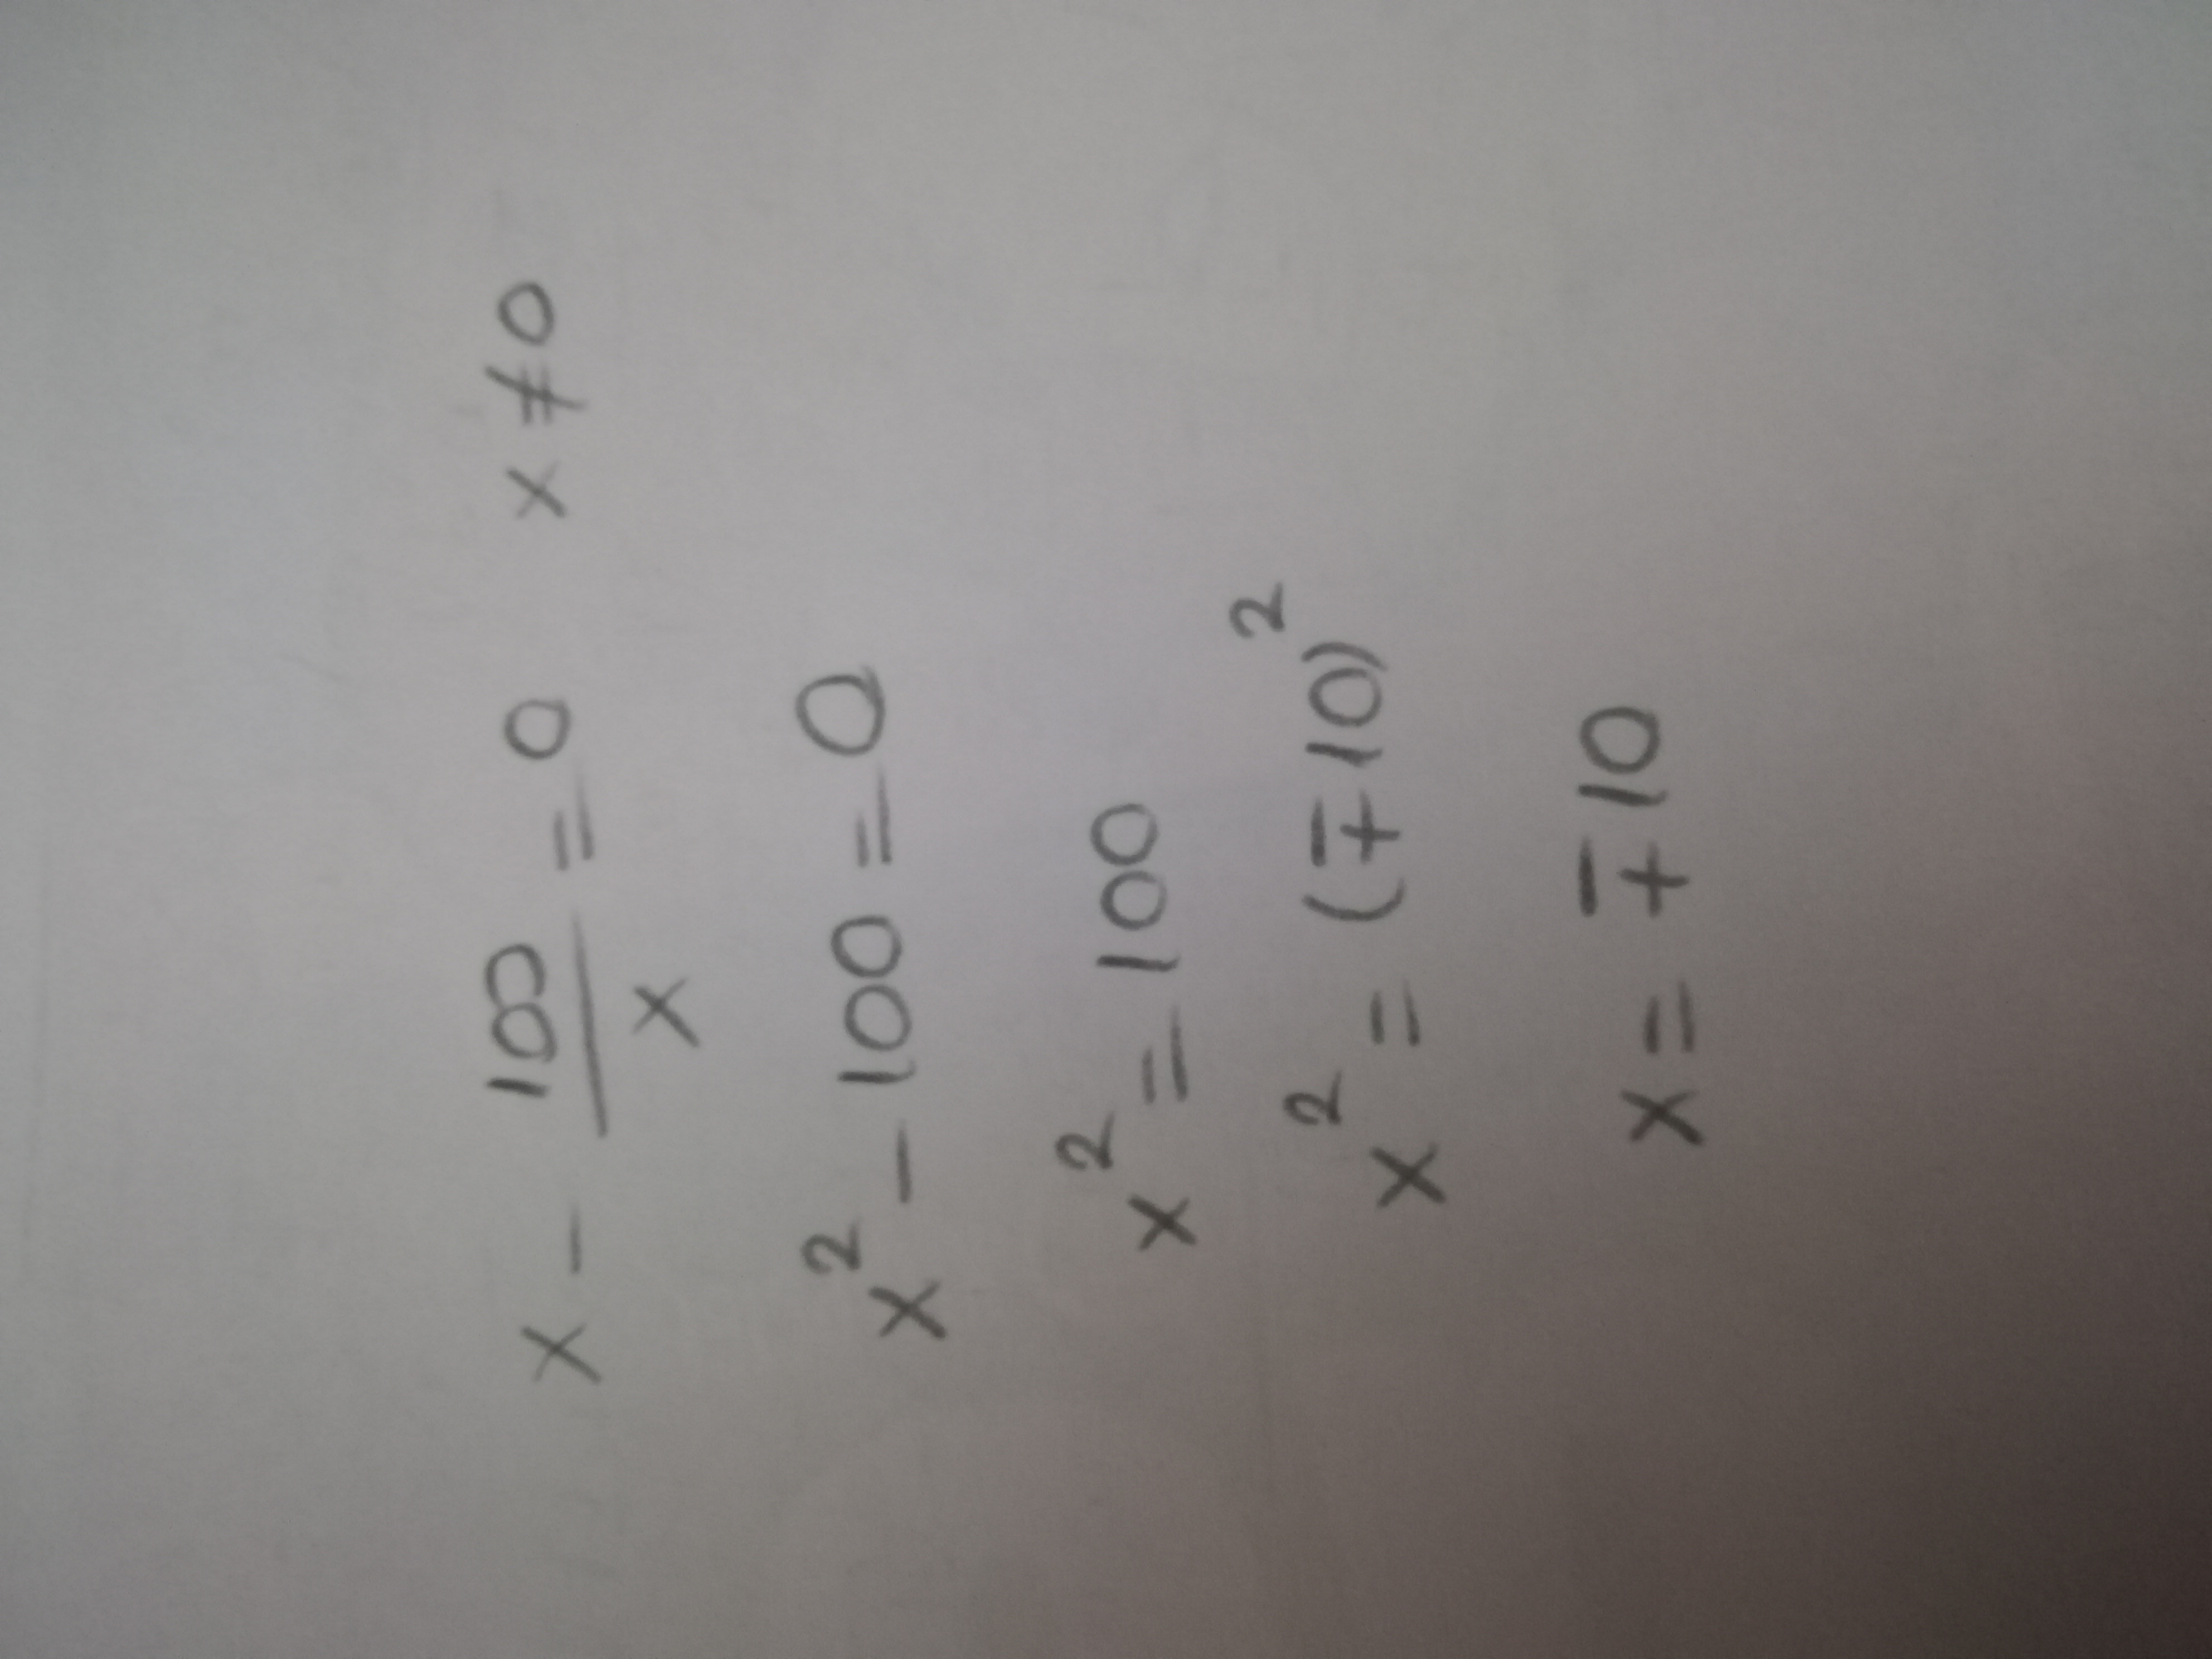 x - 100/x = 0 x ≠ 0
x² - 100 = 0
x² = 100
x² = (∓10)²
x = ∓10